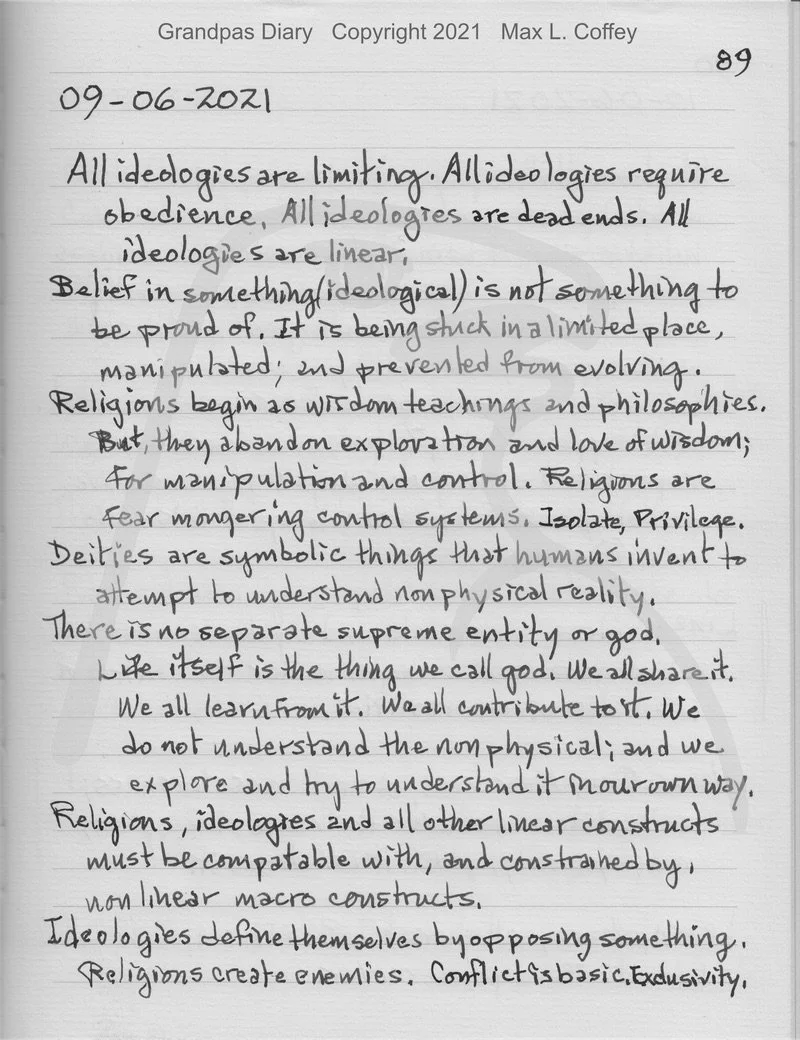 Grandpas Diary Copyright 2021 Max L. Coffey
89
09-06-2021
All ideologies are limiting. All ideologies require
obedience. All ideologies are dead ends. All
ideologies are linear.
Belief in something (ideological) is not something to
be proud of. It is being stuck in a limited place,
manipulated; and prevented from evolving.
Religions begin as wisdom teachings and philosophies.
But, they abandon exploration and love of wisdom;
for manipulation and control. Religions are
fear mongering control systems. Isolate, Privilege.
Deities are symbolic things that humans invent to
attempt to understand nonphysical reality.
There is no separate supreme entity or god.
Life itself is the thing we call god. We all share it.
We all learn from it. We all contribute to it. We
do not understand the nonphysical; and we
explore and try to understand it in our own way.
Religions, ideologies and all other linear constructs
must be compatable with, and constrained by,
non linear macro constructs.
Ideologies define themselves by opposing something.
Religions create enemies. Conflict is basic. Exclusivity.